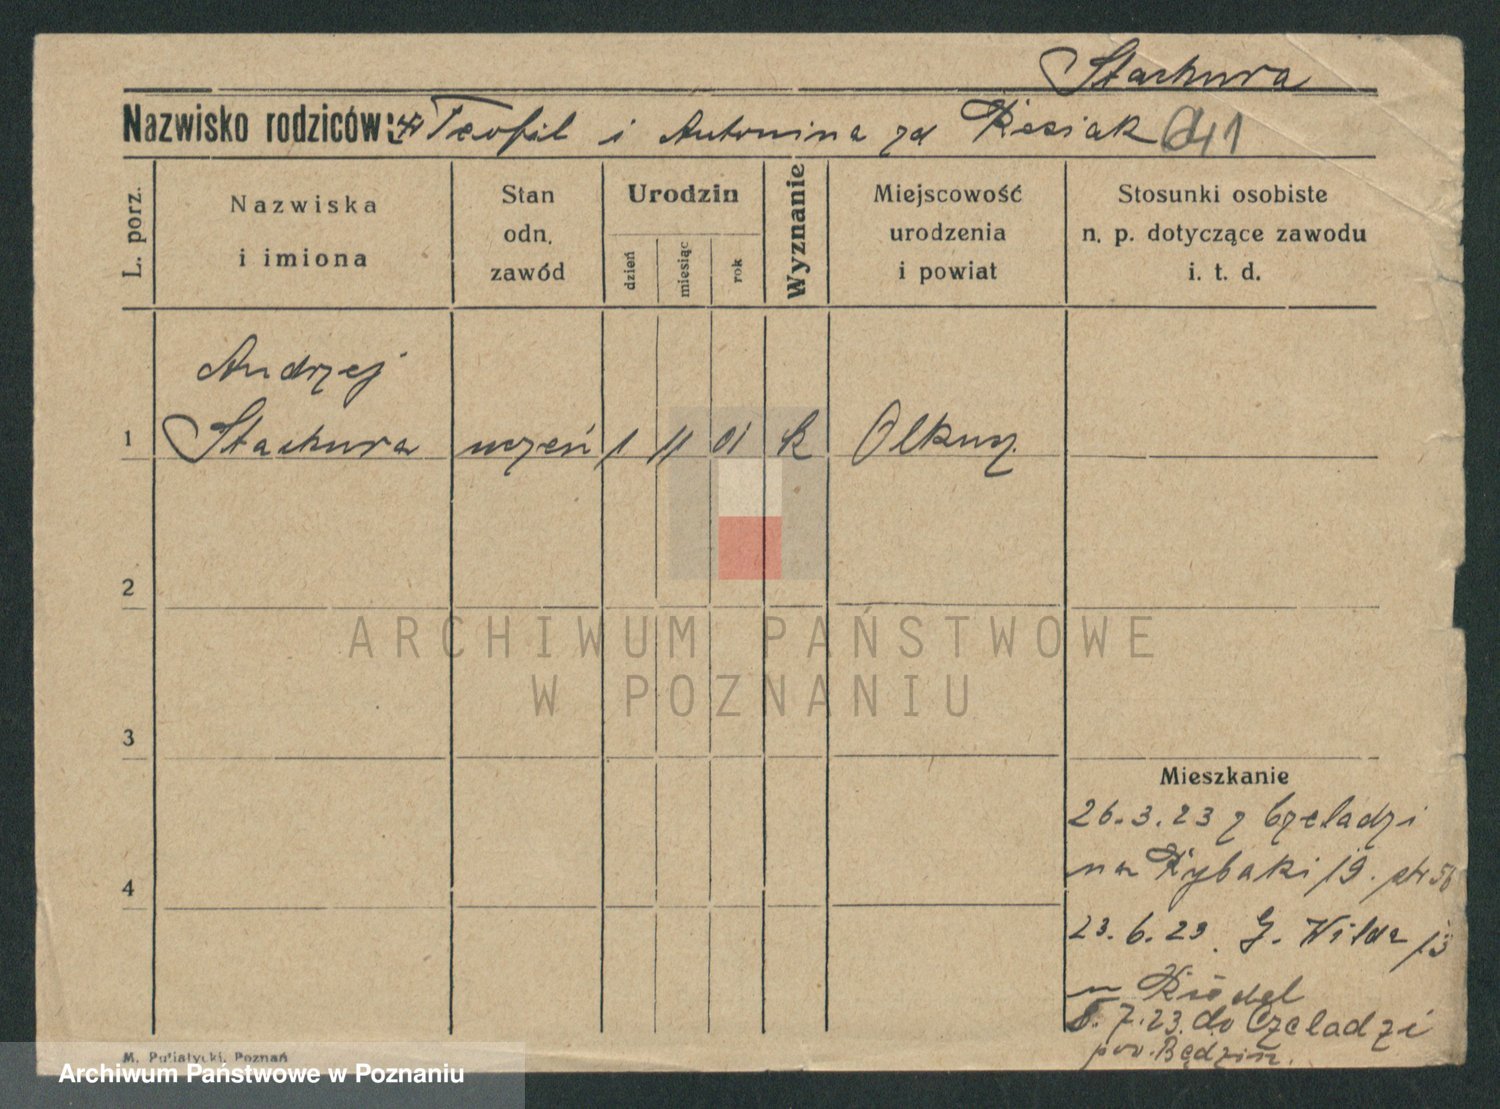 Stachura
Nazwisko rodziców: Teofil i Antonina zd Kisiak
L. porz.
Nazwiska
i imiona
Stan
odn.
zawód
Urodzin
dzień
miesiąc
rok
Wyznanie
Miejscowość
urodzenia
i powiat
Stosunki osobiste
n. p. dotyczące zawodu
i. t. d.
Andrzej
1 Stachura uczeń 1 11 01 k Olkusz
2
ARCHIWUM PAŃSTWOWE
W POZNANIU
3
Mieszkanie
26.3.23 z Czeladzi
4 na Rybaki 19. ptr
23.6.23. G. Wilda 13
u
5.7.23. do Czeladzi
pow. Będzin.
M. Putiatycki, Poznań
Archiwum Państwowe w Poznaniu